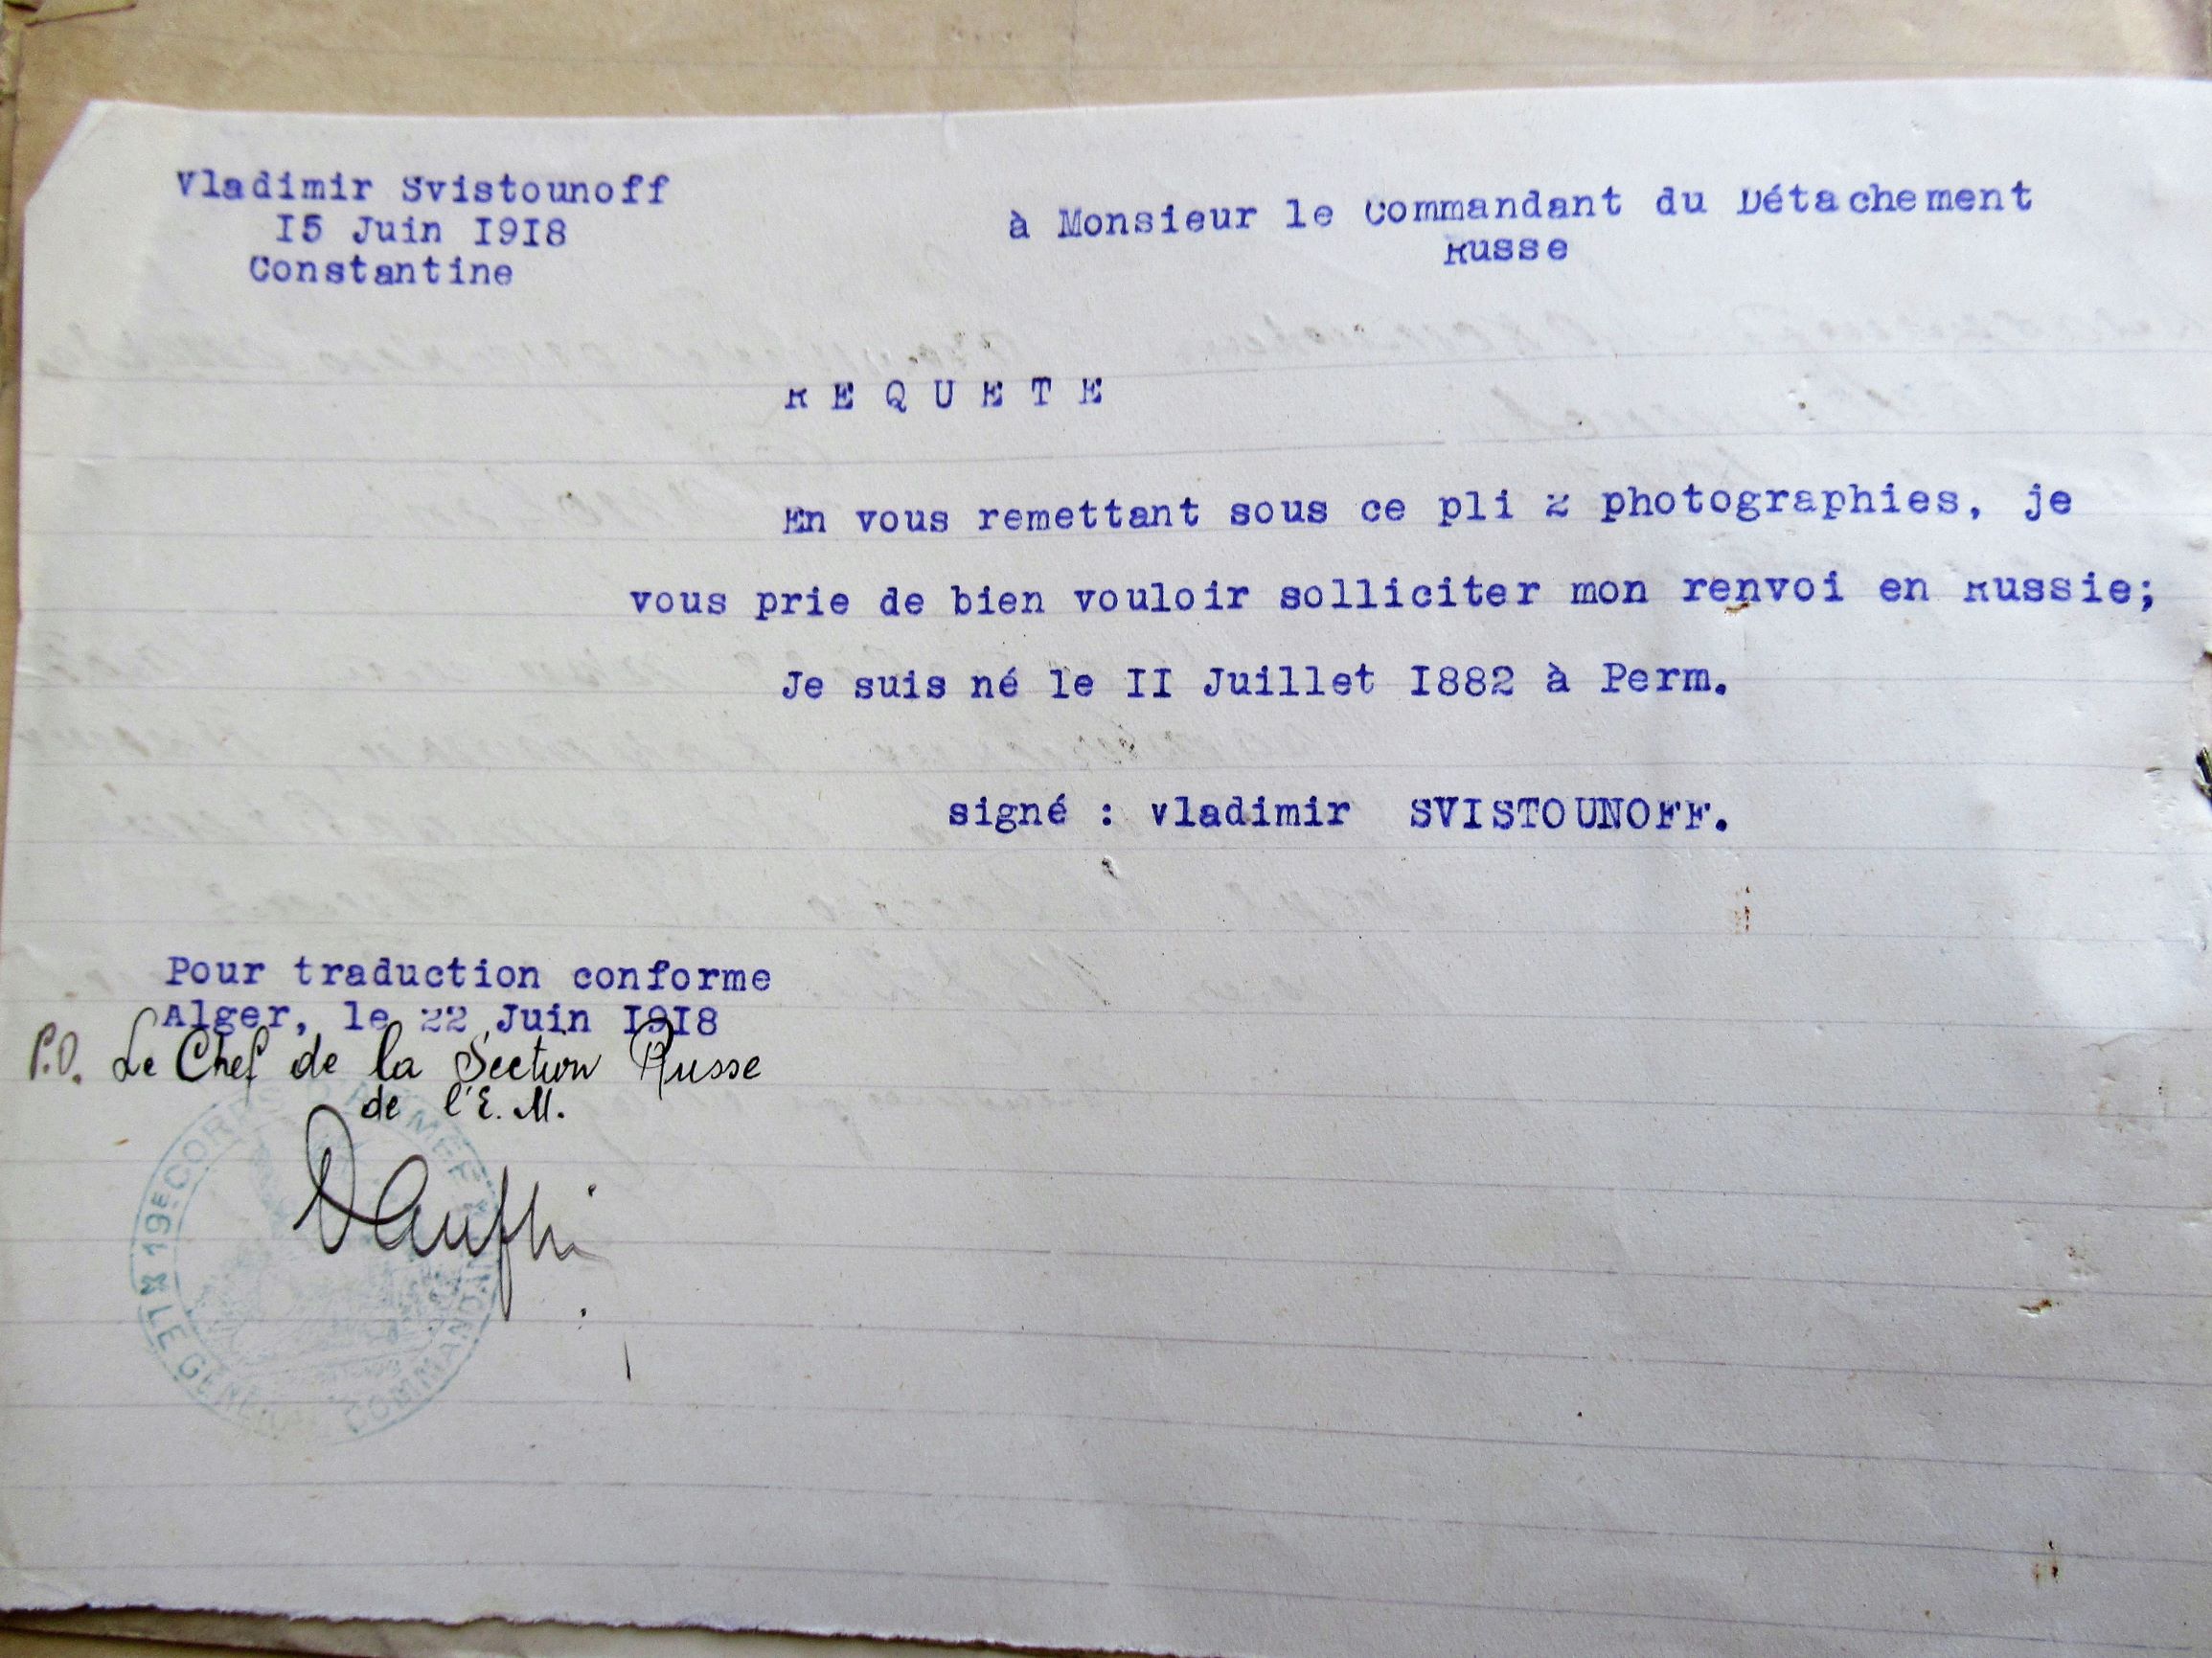 Vladimir Svistounoff
I5 Juin I9I8
Constantine
à Monsieur le Commandant du Détachement
Russe
R E Q U E T E
En vous remettant sous ce pli 2 photographies, je
vous prie de bien vouloir solliciter mon renvoi en Russie;
Je suis né le II Juillet I882 à Perm.
signé : Vladimir SVISTOUNOFF.
Pour traduction conforme
Alger, le 22 Juin I9I8
P.O. Le Chef de la Section Russe
de l'E.M.
19E CORPS D'ARMEE
LE GENERAL COMMANDANT